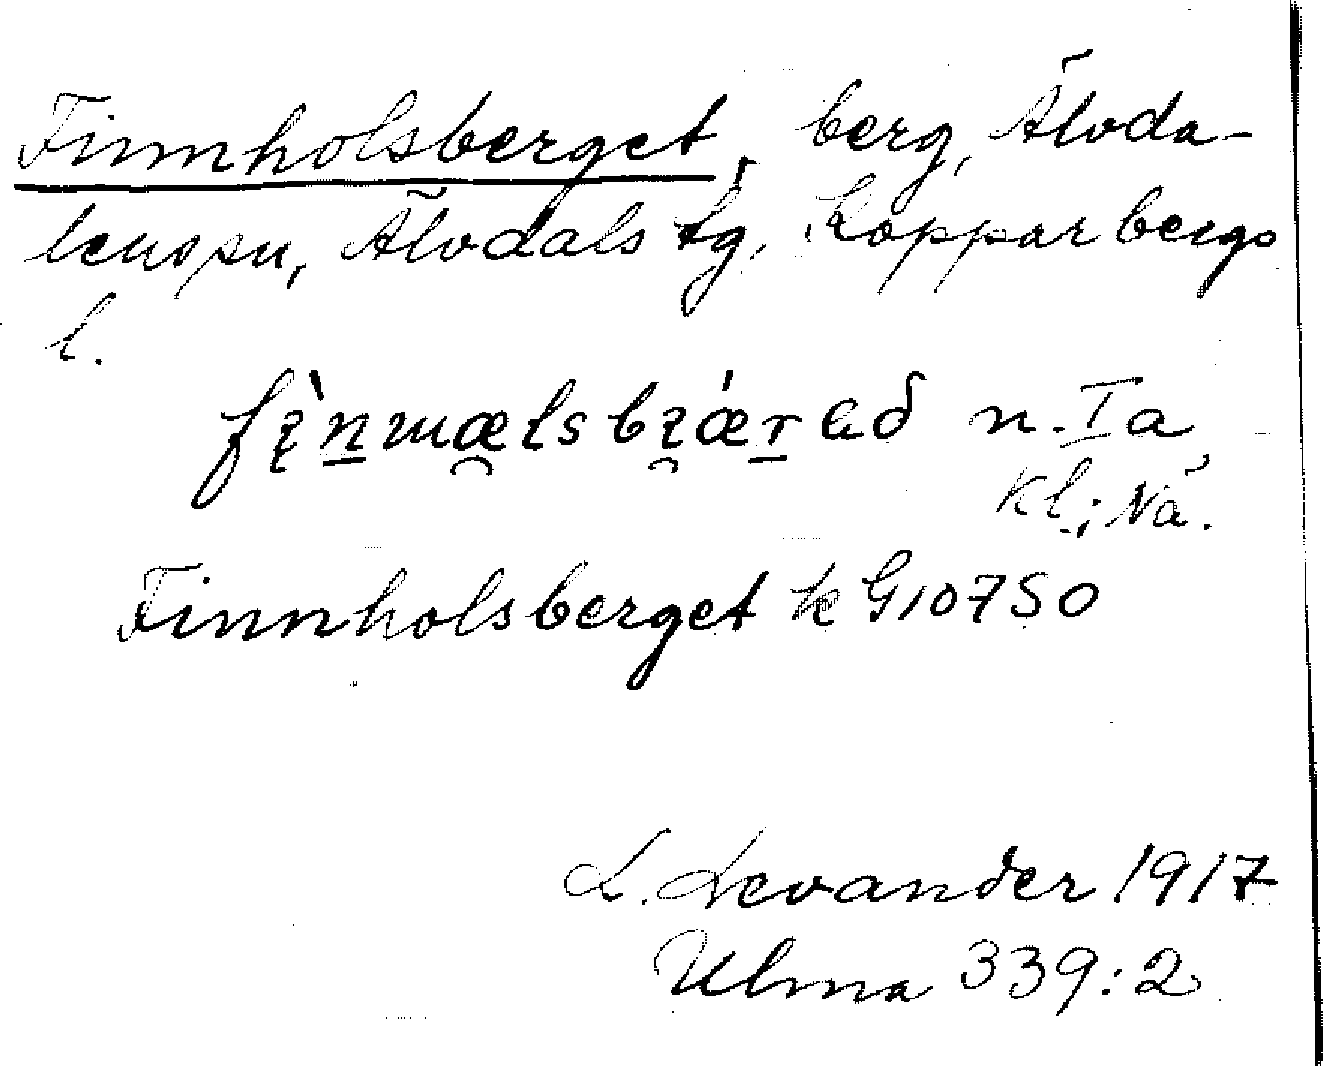 Finnholsberget, berg, Älvda-
lens sn, Älvdals tg, Kopparbergs
l.
n. I a
Kl.; Nä.
Finnholsberget k G10750
L. Levander 1917
Ulma 339:2